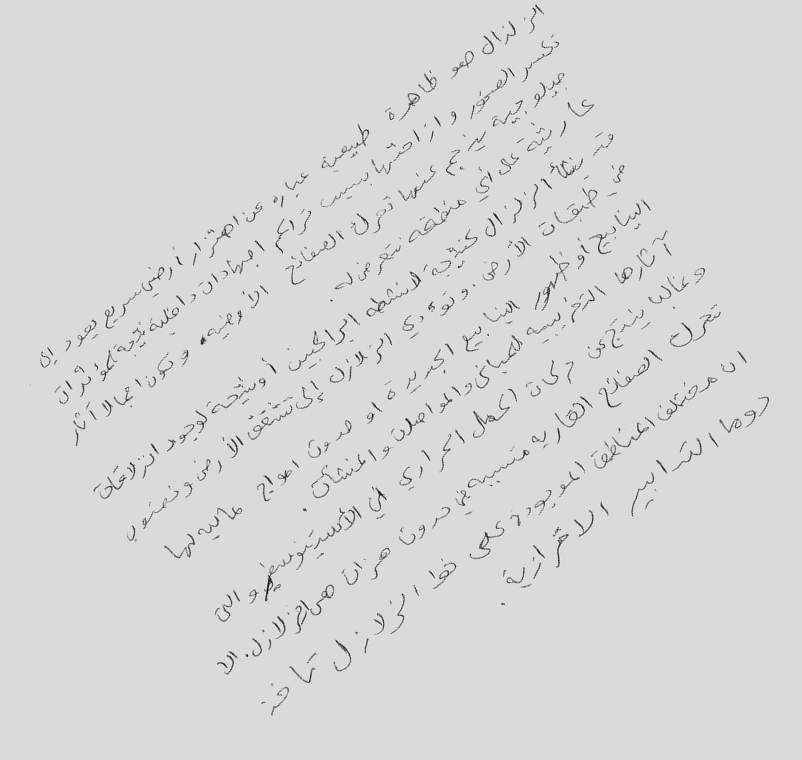 الزلزال هو ظاهرة طبيعية عبارة عن اهتزاز أرضي سريع يعود إلى
تكسر الصخور وازاحتها بسبب تراكم اجهادات داخلية نتيجة لمؤثرات
جيلوجية ينجم عنها تحرك الصفائح الأرضية، و تكون اجمالا آثار
على أي منطقة تتعرض له.
قد ينشأ الزلزال كنتيجة لانشطة البراكين أو نتيجة لوجود انزلاقات
في طبقات الأرض. وتؤدي الزلازل إلى تشقق الأرض ونضوب
الينابيع أو ظهور الينابيع الجديدة او حدوث امواج عالية
آثارها التخريبية للمباني والمواصلات والمنشآت.
وغالبا ينتج عن حركات الحمل الحراري في والتي
تحرك الصفائح القارية متسببة في حدوث هزات هي الزلازل. الا
ان مختلف المناطق الموجودة على الزلازل
دوما التدابير الاحترازية.